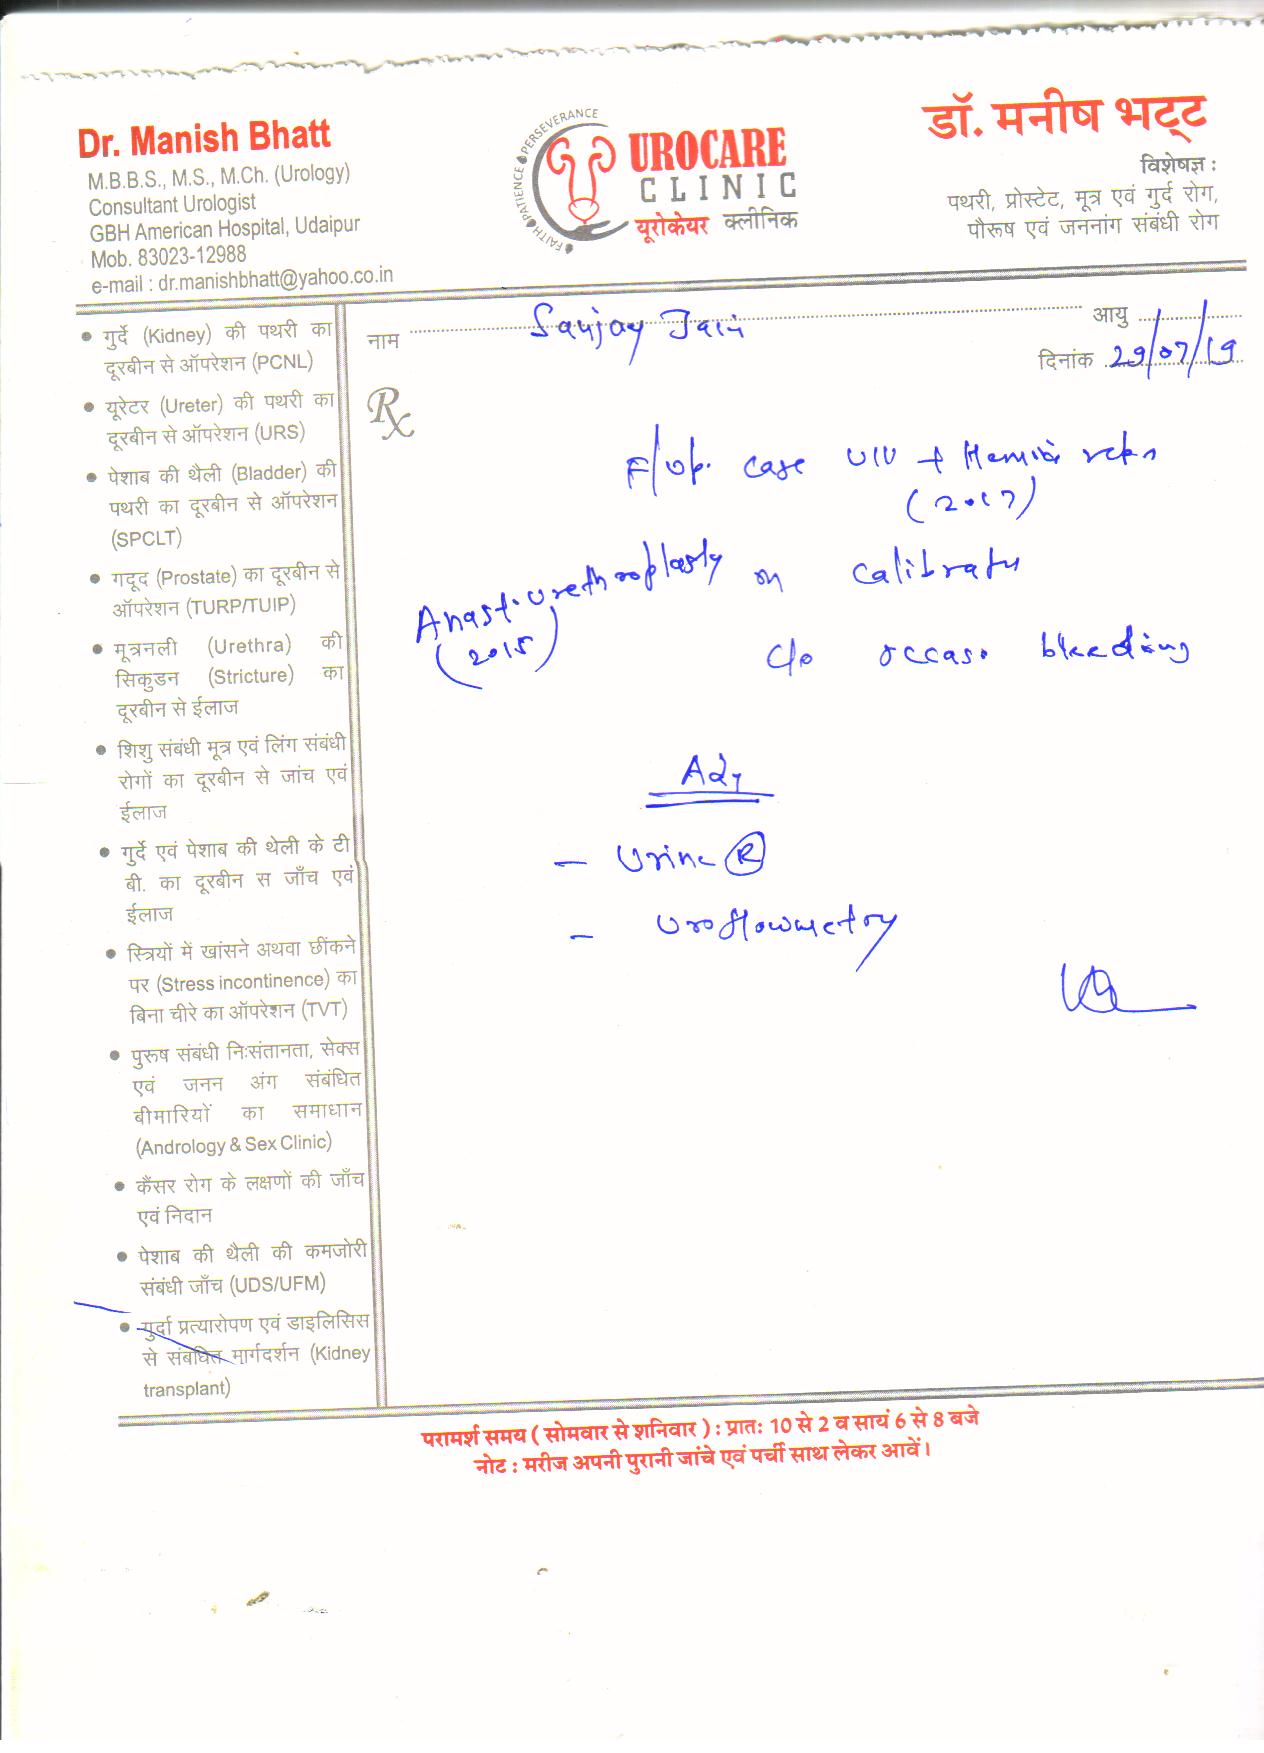 Dr. Manish Bhatt
M.B.B.S., M.S., M.Ch. (Urology)
Consultant Urologist
GBH American Hospital, Udaipur
Mob. 83023-12988
e-mail : dr.manishbhatt@yahoo.co.in
FAITH PATIENCE PERSEVERANCE
UROCARE
CLINIC
यूरोकेयर क्लीनिक
डॉ. मनीष भट्ट
विशेषज्ञ :
पथरी, प्रोस्टेट, मूत्र एवं गुर्द रोग,
पौरूष एवं जननांग संबंधी रोग
नाम Sanjay Jain आयु
दिनांक 29/07/19
गुर्दे (Kidney) की पथरी का
दूरबीन से ऑपरेशन (PCNL)
यूरेटर (Ureter) की पथरी का
दूरबीन से ऑपरेशन (URS)
पेशाब की थैली (Bladder) की
पथरी का दूरबीन से ऑपरेशन
(SPCLT)
गदूद (Prostate) का दूरबीन से
ऑपरेशन (TURP/TUIP)
मूत्रनली (Urethra) की
सिकुडन (Stricture) का
दूरबीन से ईलाज
शिशु संबंधी मूत्र एवं लिंग संबंधी
रोगों का दूरबीन से जांच एवं
ईलाज
गुर्दे एवं पेशाब की थेली के टी
बी. का दूरबीन स जाँच एवं
ईलाज
स्त्रियों में खांसने अथवा छींकने
पर (Stress incontinence) का
बिना चीरे का ऑपरेशन (TVT)
पुरूष संबंधी निःसंतानता, सेक्स
एवं जनन अंग संबंधित
बीमारियों का समाधान
(Andrology & Sex Clinic)
कैंसर रोग के लक्षणों की जाँच
एवं निदान
पेशाब की थैली की कमजोरी
संबंधी जाँच (UDS/UFM)
गुर्दा प्रत्यारोपण एवं डाइलिसिस
से संबधित मार्गदर्शन (Kidney
transplant)
Rx
F/Up. case +
(2017)
Anast. Urethroplasty on
(2015)
c/o occas. bleeding
Adv
- Urine (R)
- Uroflowmetry
परामर्श समय ( सोमवार से शनिवार ) : प्रातः 10 से 2 व सायं 6 से 8 बजे
नोट : मरीज अपनी पुरानी जांचे एवं पर्ची साथ लेकर आवें।